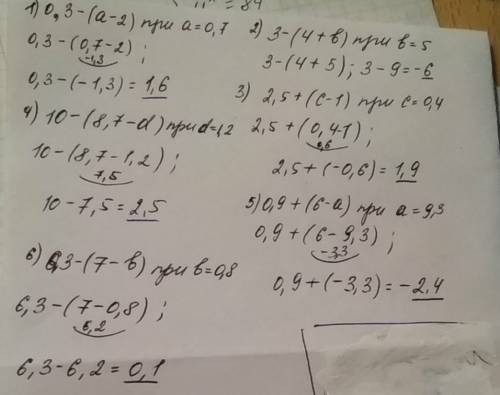 " = 84
1) 0,3-(a-2) при a=0,7
0,3-(0,7-2) ;
-1,3
0,3-(-1,3) = 1,6
2) 3-(4+в) при в=5
3-(4+5) ; 3-9=-6
3) 2,5+(c-1) при c=0,4
2,5+(0,4-1) ;
0,6
2,5+(-0,6) = 1,9
4) 10-(8,7-d) при d=1,2
10-(8,7-1,2) ;
7,5
10-7,5=2,5
5) 0,9+(6-a) при a=9,3
0,9+(6-9,3) ;
-3,3
0,9+(-3,3)=-2,4
6) 6,3-(7-в) при в=0,8
6,3-(7-0,8) ;
6,2
6,3-6,2=0,1